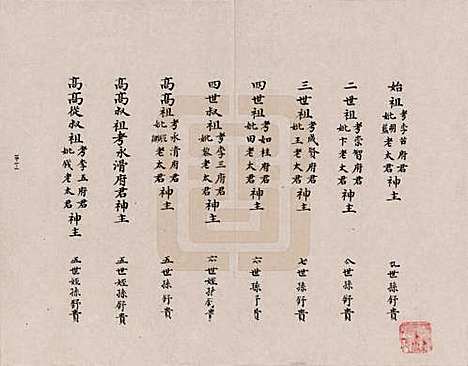 始祖考李台府君妣胡藍老太君神主 九世孫舒貴
二世祖考崇智府君妣卞老太君神主 八世孫舒貴
三世祖考成賢府君妣王老太君神主 七世孫舒貴
四世祖考如桂府君妣田老太君神主 六世孫舒貴
四世叔祖考李三府君妣老太君神主 六世姪孫舒貴
高高祖考永清府君妣老太君神主 五世孫舒貴
高高叔祖考永清府君神主 五世姪孫舒貴
高高從叔祖考李五府君妣老太君神主 五世姪孫舒貴